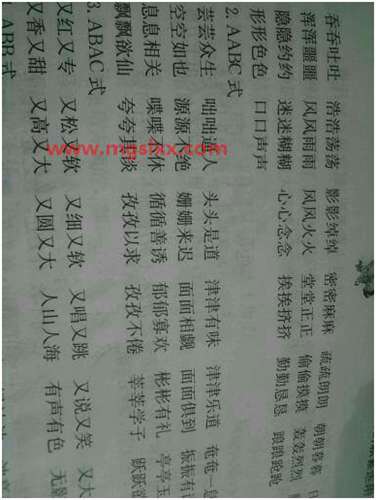 吞吞吐吐 浩浩荡荡 影影绰绰 密密麻麻 疏疏朗朗 朝朝暮暮
浑浑噩噩 风风雨雨 风风火火 堂堂正正 偷偷摸摸 轰轰烈烈
隐隐约约 迷迷糊糊 心心念念 挨挨挤挤 勤勤恳恳 踉踉跄跄
形形色色 口口声声
2. AABC式
芸芸众生 咄咄逼人 头头是道 津津有味 津津乐道 奄奄一
空空如也 源源不绝 姗姗来迟 面面相觑 面面俱到 振振有
息息相关 喋喋不休 循循善诱 郁郁寡欢 彬彬有礼 亭亭玉
飘飘欲仙 夸夸其谈 孜孜以求 孜孜不倦 莘莘学子 跃跃欲
3. ABAC式
又红又专 又松又软 又细又软 又唱又跳 又说又笑 又大
又香又甜 又高又大 又圆又大 人山人海 有声有色 无影
ABB式
www.mgslxx.com